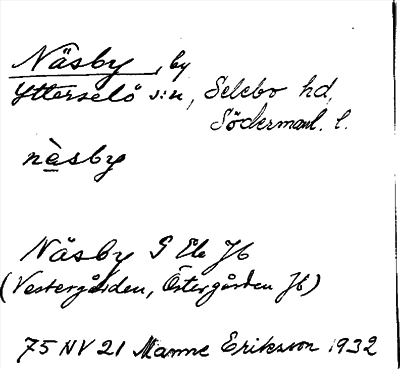 Näsby, by
Ytterselö s:n, Selebo hd,
Södermanl. l.
nèsby
Näsby S Ek Jb
(Vestergården, Östergården Jb)
75 NV 21 Manne Eriksson 1932